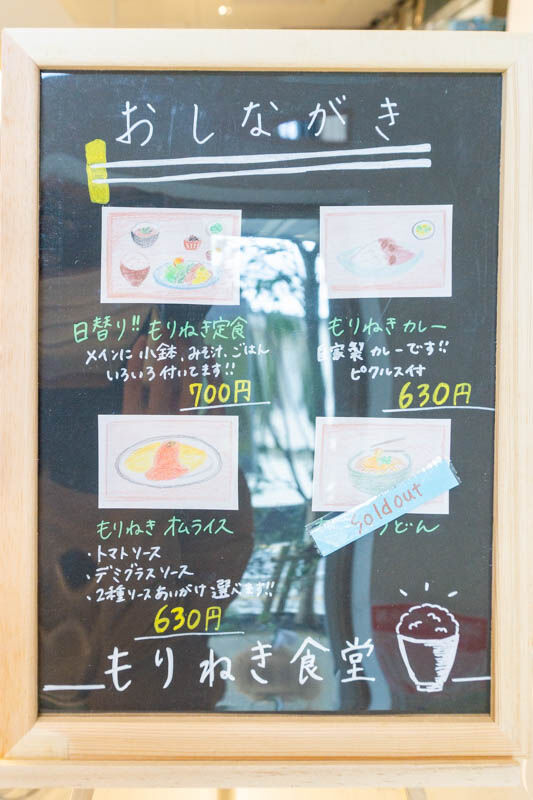 おしながき
日替り!! もりねぎ定食
メインに 小鉢、みそ汁、ごはん
いろいろ付いてます!!
700円
もりねぎ カレー
自家製 カレーです!!
ピクルス付
630円
もりねぎ オムライス
・トマトソース
・デミグラスソース
・2種ソースあいがけ 選べます!!
630円
sold out
うどん
もりねぎ食堂